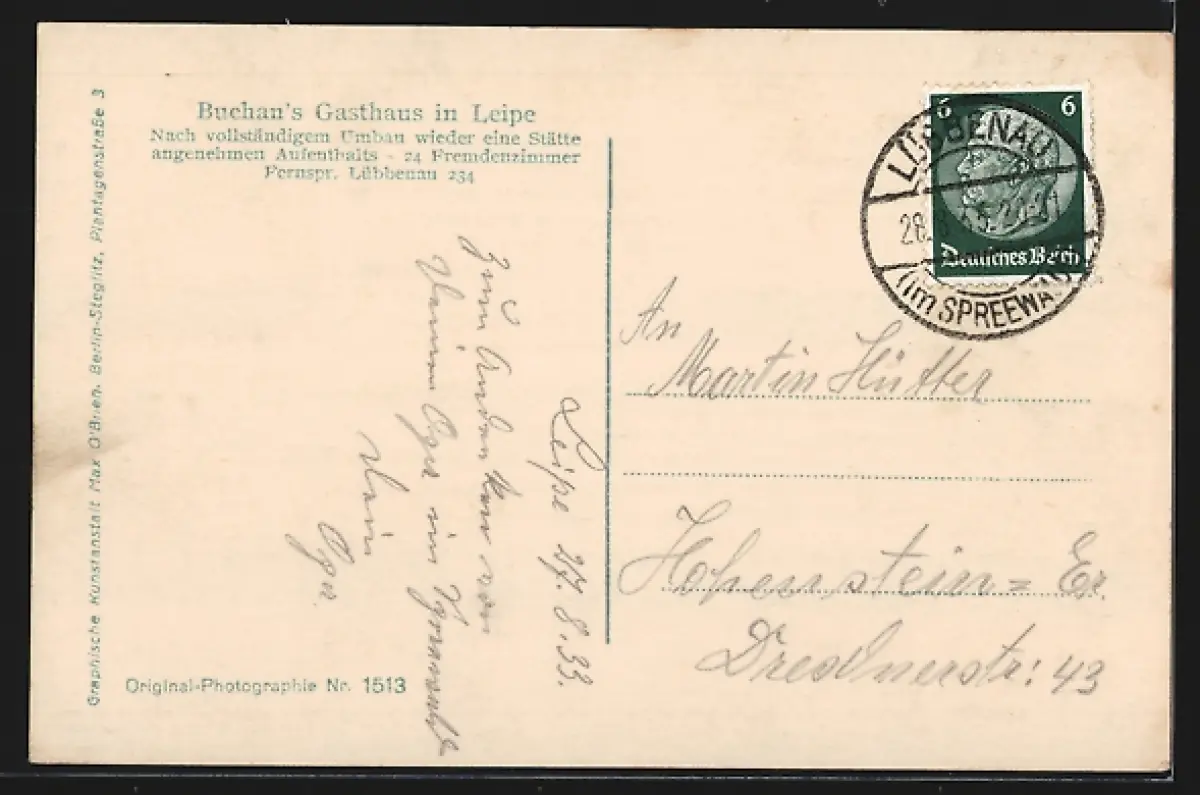 Buchan's Gasthaus in Leipe
Nach vollständigem Umbau wieder eine Stätte
angenehmen Aufenthalts - 24 Fremdenzimmer
Fernspr. Lübbenau 234
Graphische Kunstanstalt Max O'Brien, Berlin-Steglitz, Plantagenstraße 3
Original-Photographie Nr. 1513
Leipe 27.8.33.
Zum Andenken von
Deinem Opa im Spreewald
Dein
Opa.
6 6
Deutsches Reich
LÜBBENAU
28.
(im SPREEWALD)
An
Martin Hütter
Hohenstein=Er
Dresdnerstr: 43